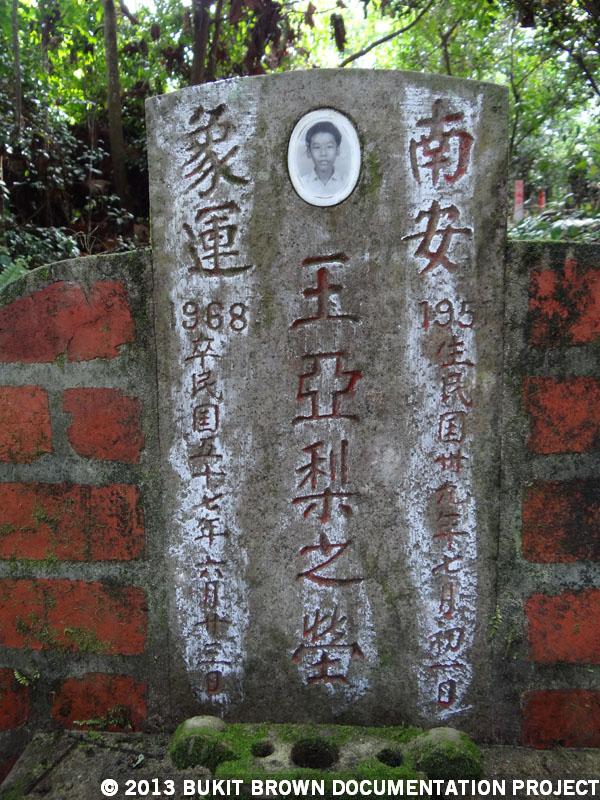 南安
195
生民国卅九年七月初日
王亞梨之塋
象運
1968
卒民国五十七年六月廿三日
© 2013 BUKIT BROWN DOCUMENTATION PROJECT